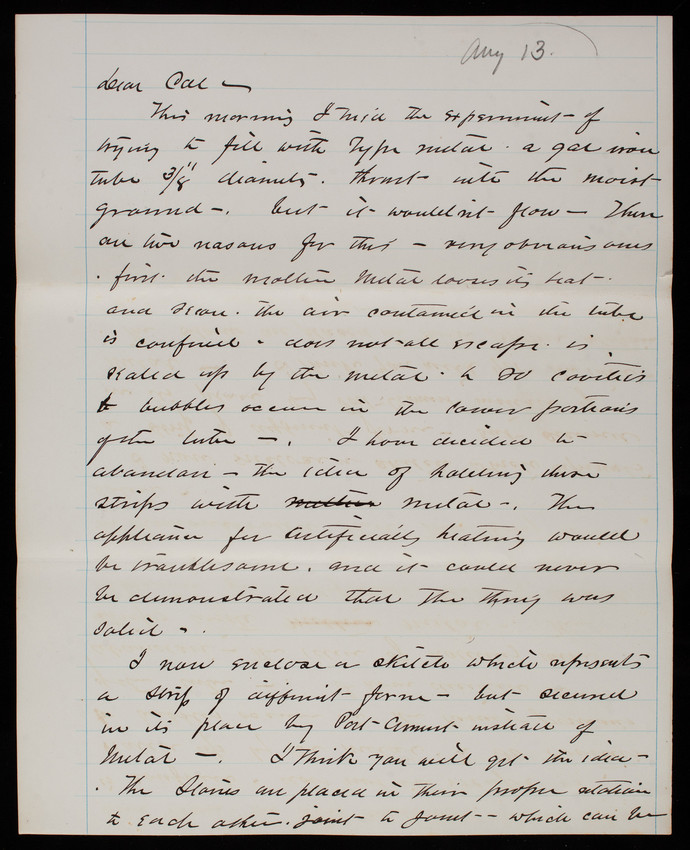 Aug 13.
Dear Col —
This morning I tried the experiment of
trying to fill with Type metal. a gas iron
tube 3/8" diameter. thrust into the moist
ground —. but it wouldn't flow — There
are two reasons for this — very obvious ones
. first. the molten metal looses its heat.
and secon. the air contained in the tube
is confined. does not all escape. is
sealed up by the metal. & so cavities
& bubbles occur in the lower portions
of the tube —. I have decided to
abandon — the idea of holding these
strips with metal —. The
appliance for artificially heating would
be troublesome. and it could never
be demonstrated that the thing was
solid —.
I now enclose a sketch which represents
a strip of different form — but secured
in its place by Port Cement instead of
Metal —. I think you will get the idea —
. The Stones are placed in their proper relation
to each other. joint to joint — which can be